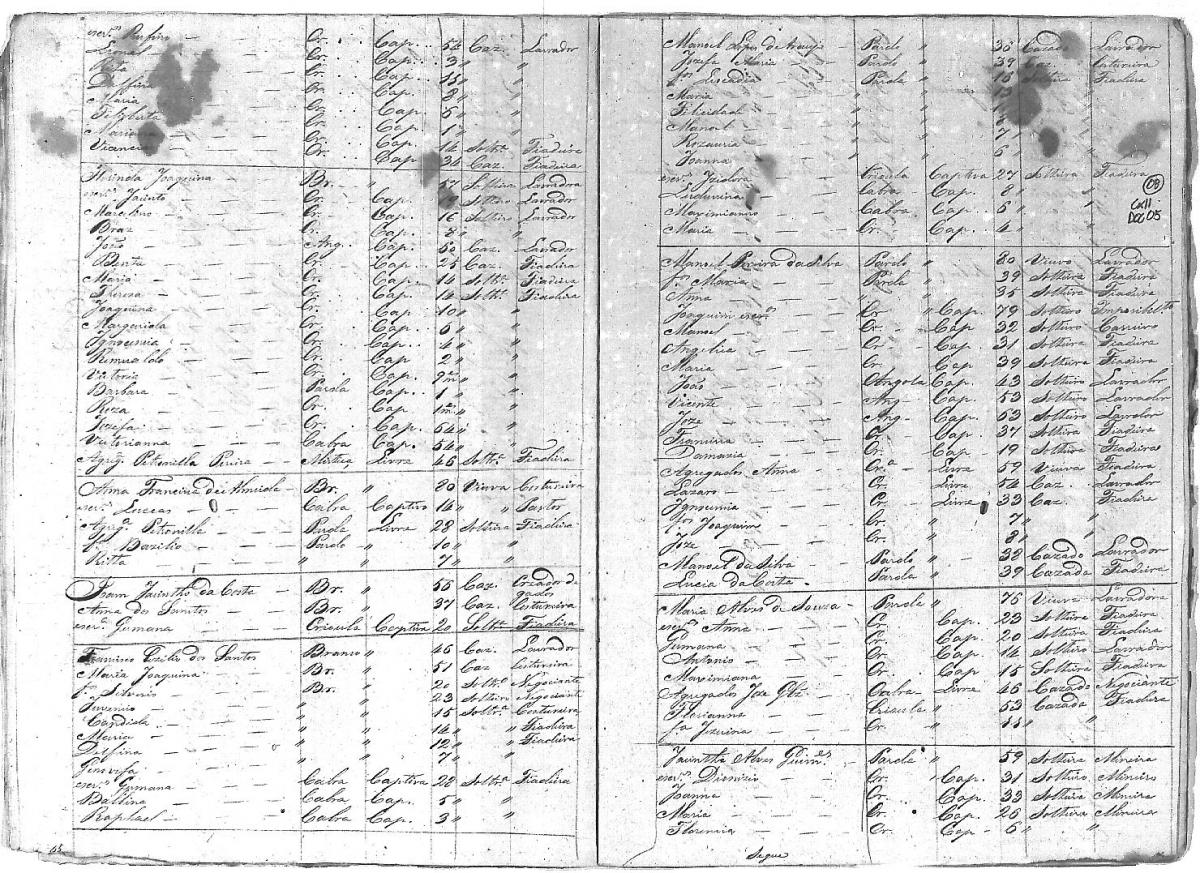 escr.º Rufino Cr. Cap. 54 Caz. Lavrador
Cr. Cap. 3 " "
Rita Cr. Cap. 15 " "
Delfina Cr. Cap. 8 " "
Maria Cr. Cap. 5 "
Felizbeta Cr. Cap. 1 "
Mariana Cr. Cap. 14 Soltr.ª Fiadeira
Cr. Cap. 34 Caz. Fiadeira
Joaquina Br. " 57 Solteira Lavradora
escr.º Jacinto Cr. Cap. Soltro Lavrador
Marcelino Cr. Cap. 16 Solteiro Lavrador
Braz Cr. Cap. 8 " "
João Ang. Cap. 50 Caz. Lavrador
Benta Cr. Cap. 25 Caz. Fiadeira
Maria Cr. Cap. 14 Solt.ª Fiadeira
Thereza Cr. Cap. 14 Solt.ª Fiadeira
Joaquina Cr. Cap. 10 " "
Margarida Cr. Cap. 6 " "
Ignocencia Cr. Cap. 4 " "
Romualdo Cr. Cap. 2 " "
Victoria Cr. Cap. 9 m "
Barbara Parda Cap. 1 "
Roza Cr. Cap. 1 m "
Jozefa Cr. Cap. 54 "
Victorianna Cabra Cap. 54 "
Agreg. Petronilla Pereira Mistiça Livre 46 Solt.ª Fiadeira
Anna Francisca de Almeida Br. " 80 Viuva Costureira
escr.º Luccas Cabra Captivo 14 " Pastor
Agreg.ª Petronilla Parda Livre 28 Solteira Fiadeira
f.º Bazilio Pardo " 10 "
Ritta " " 7 "
Joam Jacintho da Costa Br. " 55 Caz. Criador de gados
Anna dos Santos Br. " 37 Caz. Costureira
escr.ª Jermana Crioula Captiva 20 Solt.ª Fiadeira
Francisco dos Santos Branco " 45 Caz. Lavrador
Maria Joaquina Br. " 51 Caz Costureira
f.º Silverio Br. " 20 Solt.º Negociante
Juvencio Br. " 23 Solteiro Negociante
Candida " 15 Soltr.ª Costureira
Maria " " 14 " Fiadeira
Delfina " " 12 " Fiadeira
Genovefa " " 7 "
escr.ª Jermana Cabra Captiva 22 Solt.ª Fiadeira
Balbina Cabra Cap. 5 " "
Raphael Cabra Cap. 3 " "
Manoel Lopes de Araujo Pardo " 35 Cazado Lavrador
Jozefa Maria Parda " 39 Caz. Costureira
f.ª Leocadia Parda " 15 Solteira Fiadeira
Maria " "
Felicidade " "
Manoel " "
Rozauria " " 7 "
Joanna " " 6 "
escr.ª Izidora Crioula Captiva 27 Solteira Fiadeira
Cabra Cap. 8 " "
Maximianno Cabra Cap. 6 "
Maria Cr. Cap. 4 "
08
Cx11
Doc 05
Manoel Pereira da Silva Pardo " 80 Viuvo Lavrador
f.ª Maria Parda " 39 Solteira Fiadeira
Anna " " 35 Solteira Fiadeira
Joaquim escr.º Cr " Cap. 79 Solteiro
Manoel Cr. Cap. 32 Solteiro Carreiro
Angelica Cr. Cap. 31 Solteira Fiadeira
Maria Cr. Cap. 39 Solteira Fiadeira
João Angola Cap. 43 Solteiro Lavrador
Vicente Ang. Cap. 53 Solteiro Lavrador
Joze Ang. Cap. 53 Solteiro Lavrador
Francisca Cr. Cap. 37 Solteira Fiadeira
Damazia Cr. Cap. 19 Solteira Fiadeira
Agregados Anna Cr.ª Livre 59 Viuva Fiadeira
Lazaro Cr. Livre 54 Caz. Lavrador
Ignocencia Cr. Livre 33 Caz. Fiadeira
f.os Joaquim Cr. " 7 "
Joze Cr. " 8 "
Manoel da Silva Pardo " 38 Cazado Lavrador
Lucia da Costa Parda " 39 Cazada Fiadeira
Maria Alves de Souza Parda " 75 Viuva Lavradora
escr.ª Anna Cr. Cap. 23 Solteira Fiadeira
Jermana Cr. Cap. 20 Solteira Fiadeira
Antonio Cr. Cap. 14 Solteiro Lavrador
Maximiana Cr. Cap 15 Solteira Fiadeira
Agregados Joze Glz. Cabra Livre 46 Cazado Negociante
Florianna Crioula " 53 Cazada Fiadeira
f.ª Jezuina Cr. " 11 " "
Jacintha Alves Guim.es Parda " 59 Solteira Mineira
escr.º Dionizio Cr. " Cap. 31 Solteiro Mineiro
Joanna Cr. Cap. 33 Solteira Mineira
Maria Cr. Cap. 26 Solteira Mineira
Florencia Cr. Cap. 6 " "
Segue